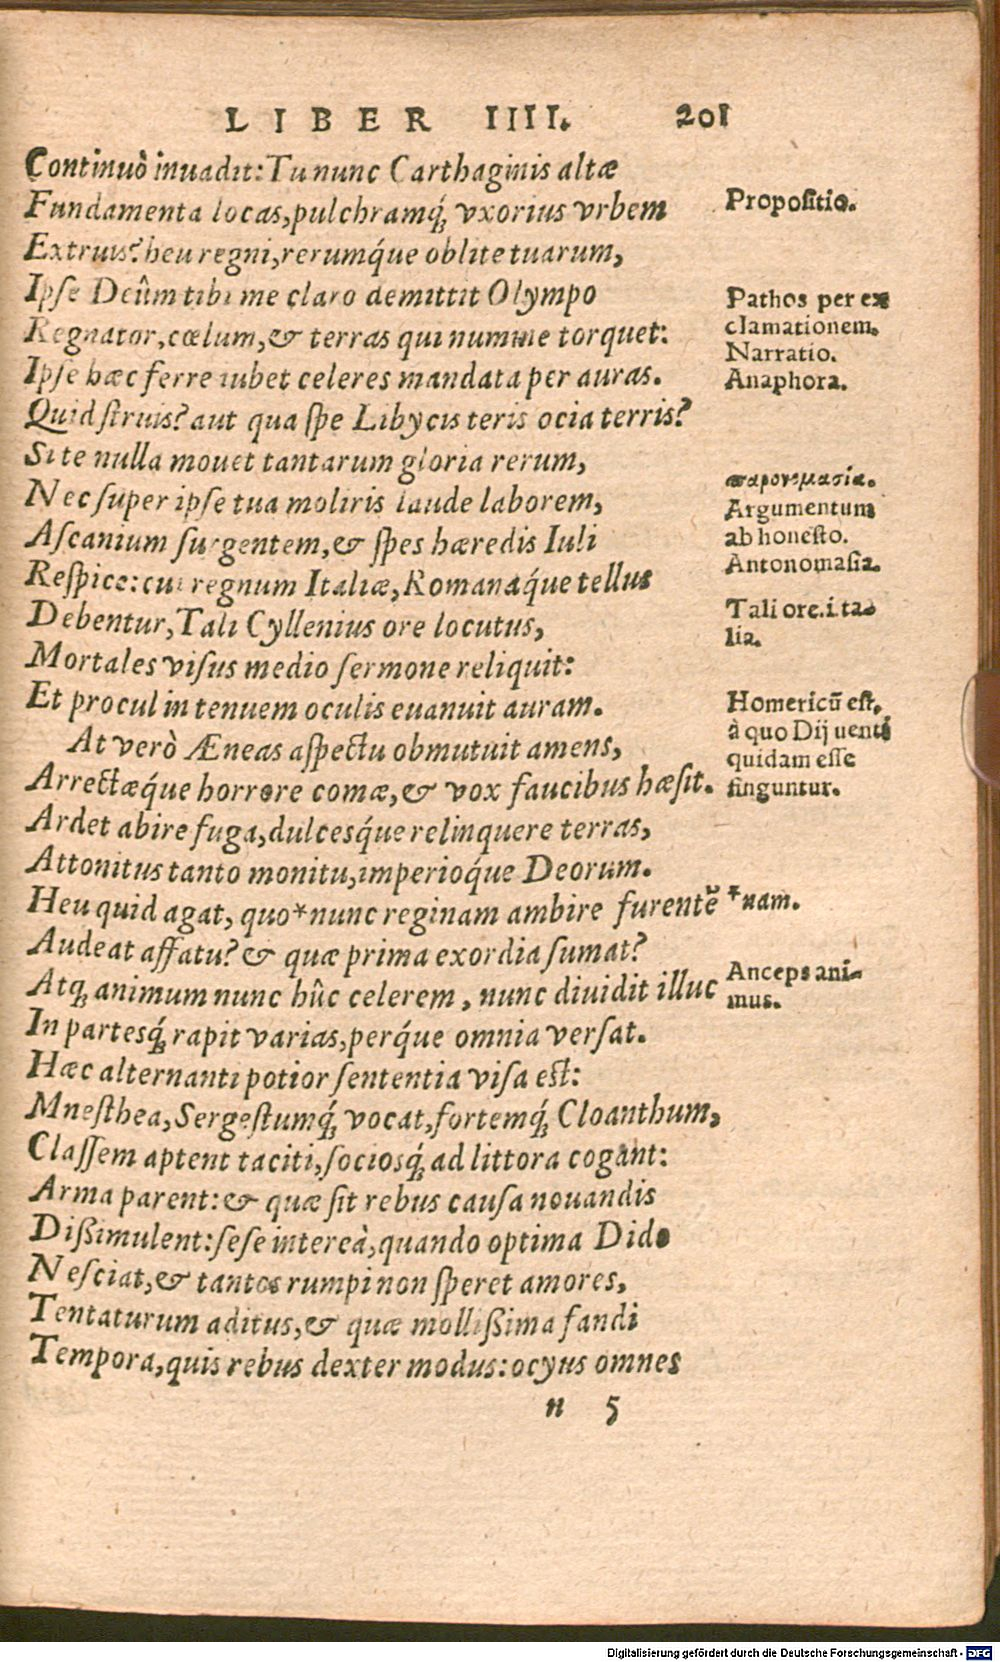 LIBER IIII. 201
Continuò inuadit: Tu nunc Carthaginis altæ
Fundamenta locas, pulchramq́; vxorius vrbem
Propositio.
Extruis? heu regni, rerumq́ue oblite tuarum,
Ipſe Deûm tibi me claro demittit Olympo
Pathos per ex
Regnator, cœlum, & terras qui numine torquet:
clamationem.
Narratio.
Ipſe hæc ferre iubet celeres mandata per auras.
Anaphora.
Quid ſtruis? aut qua ſpe Libycis teris ocia terris?
Si te nulla mouet tantarum gloria rerum,
παρονομασία.
Nec ſuper ipſe tua moliris laude laborem,
Argumentum
Aſcanium ſurgentem, & ſpes hæredis Iuli
ab honeſto.
Antonomaſia.
Reſpice: cui regnum Italiæ, Romanaq́ue tellus
Debentur, Tali Cyllenius ore locutus,
Tali ore.i.ta-
lia.
Mortales viſus medio ſermone reliquit:
Et procul in tenuem oculis euanuit auram.
Homericũ eſt,
à quo Dij uenti
At verò Æneas aſpectu obmutuit amens,
quidam eſſe
Arrectæq́ue horrore comæ, & vox faucibus hæſit.
finguntur.
Ardet abire fuga, dulcesq́ue relinquere terras,
Attonitus tanto monitu, imperioq́ue Deorum.
Heu quid agat, quo* nunc reginam ambire furentẽ
*nam.
Audeat affatu? & quæ prima exordia ſumat?
Atq; animum nunc hûc celerem, nunc diuidit illuc
Anceps ani-
mus.
In partesq́; rapit varias, perq́ue omnia verſat.
Hæc alternanti potior ſententia viſa eſt:
Mneſthea, Sergeſtumq́; vocat, fortemq́; Cloanthum,
Claſſem aptent taciti, ſociosq́; ad littora cogant:
Arma parent: & quæ ſit rebus cauſa nouandis
Dißimulent: ſeſe intereà, quando optima Dido
Neſciat, & tantos rumpi non ſperet amores,
Tentaturum aditus, & quæ mollißima fandi
Tempora, quis rebus dexter modus: ocyus omnes
n 5
Digitalisierung gefördert durch die Deutsche Forschungsgemeinschaft - DFG